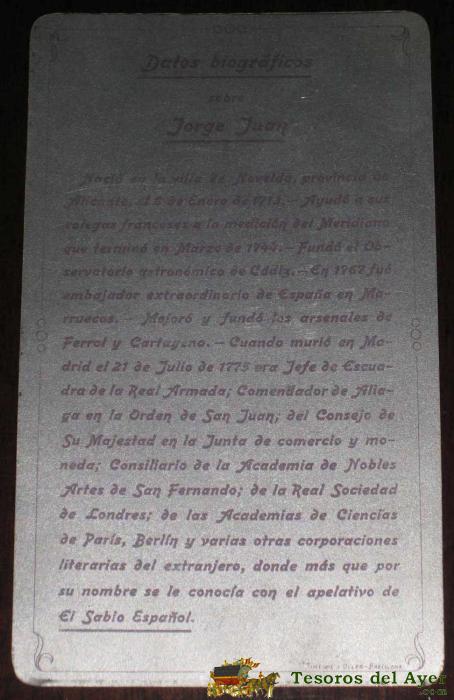 Datos biográficos
sobre
Jorge Juan
Nació en la villa de Novelda, provincia de
Alicante, el 5 de Enero de 1713.—Ayudó a sus
colegas franceses a la medición del Meridiano
que terminó en Marzo de 1744.—Fundó el Ob-
servatorio astronómico de Cádiz.—En 1767 fué
embajador extraordinario de España en Ma-
rruecos.—Mejoró y fundó los arsenales de
Ferrol y Cartagena.—Cuando murió en Ma-
drid el 21 de Julio de 1773 era Jefe de Escua-
dra de la Real Armada; Comendador de Alia-
ga en la Orden de San Juan; del Consejo de
Su Majestad en la Junta de comercio y mo-
neda; Consiliario de la Academia de Nobles
Artes de San Fernando; de la Real Sociedad
de Londres; de las Academias de Ciencias
de París, Berlín y varias otras corporaciones
literarias del extranjero, donde más que por
su nombre se le conocía con el apelativo de
El Sabio Español.
Barcelona
Tesoros del Ayer
.com